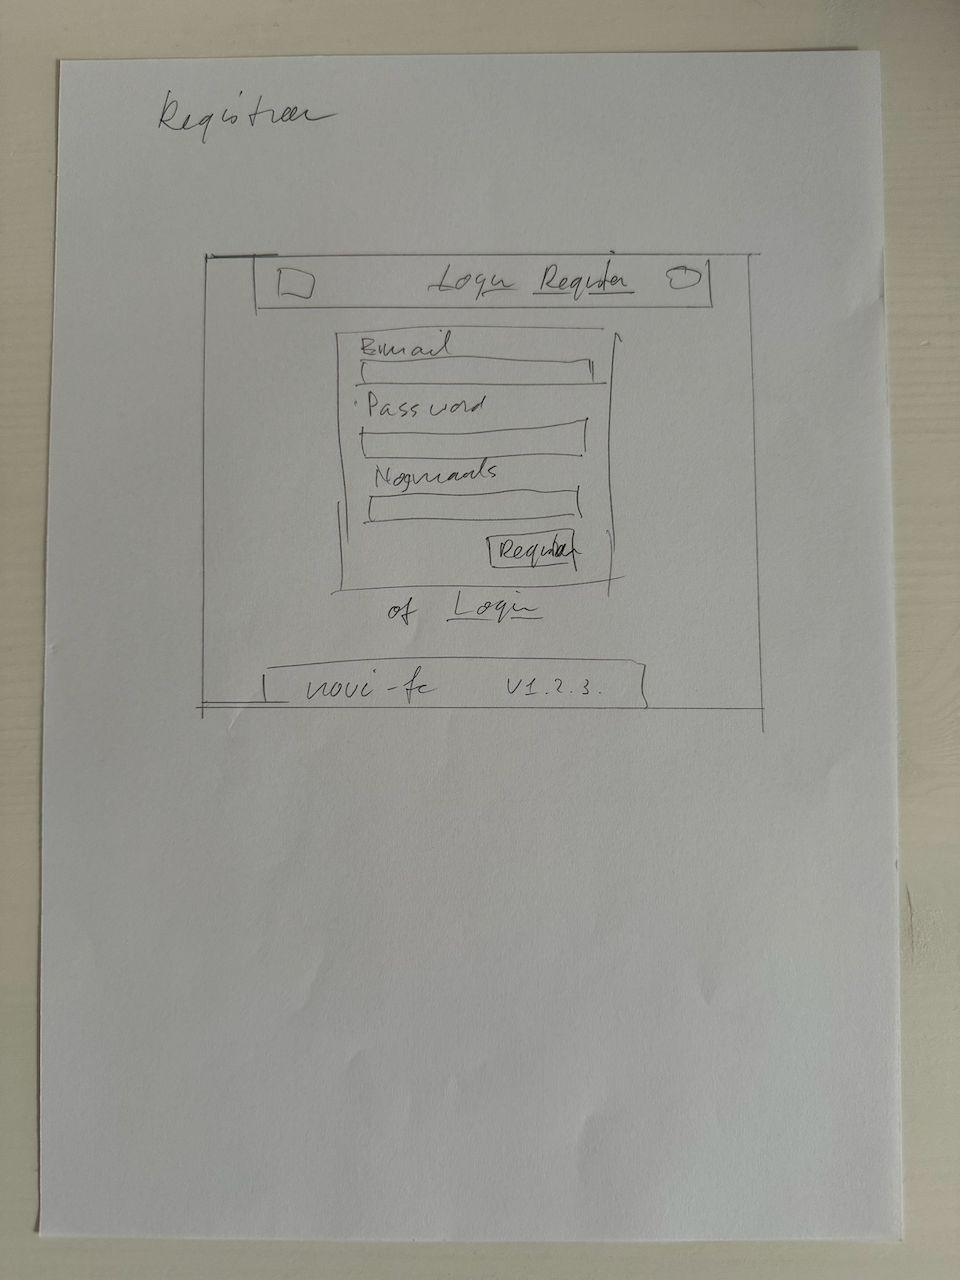 Registreer
Login Register
Email
Password
Nogmaals
Register
of Login
novi-fc V1.2.3.